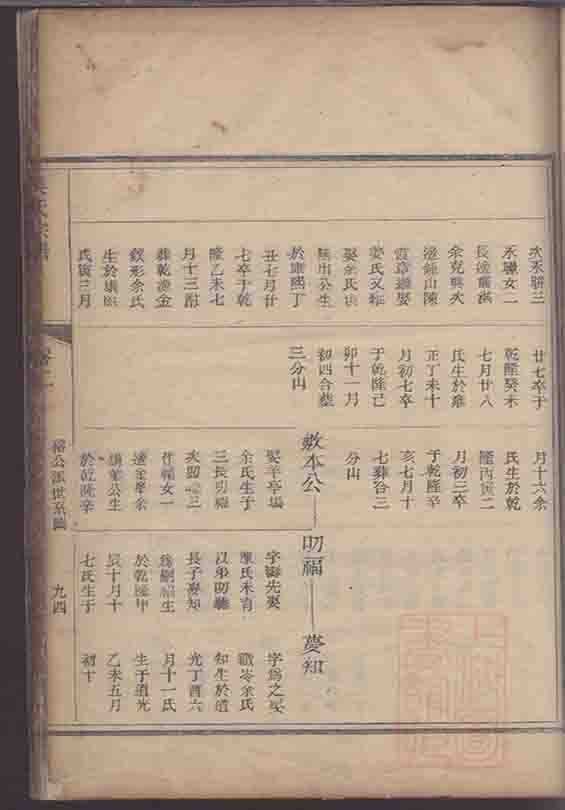 次永聨三
永聨女一
長適龍溪
余克興次
適鐘山陳
霞章繼娶
姜氏又繼
娶余氏俱
無出公生
於康熙丁
丑七月廿
七卒于乾
隆乙未七
月十三附
葬乾源金
釵形余氏
生於康熙
戊寅三月
廿七卒于
乾隆癸未
七月廿八
氏生於雍
正丁未十
月初七卒
于乾隆己
卯十一月
初四合葬
三分山
月十六余
氏生於乾
隆丙寅二
月初三卒
于乾隆辛
亥七月十
七葬合三
分山
敷本公 叨福 夢知
娶羊亭場
余氏生子
三長叨福
次叨
作福女一
適金學余
公生
於乾隆辛
字 先娶
陳氏未育
以弟叨聽
長子夢知
為嗣福生
於乾隆甲
辰十月十
七氏生于
字為之娶
鐵岑余氏
知生於道
光丁酉六
月十一氏
生于道光
乙未五月
初十
氏宗譜
裕公派世系圖
九四